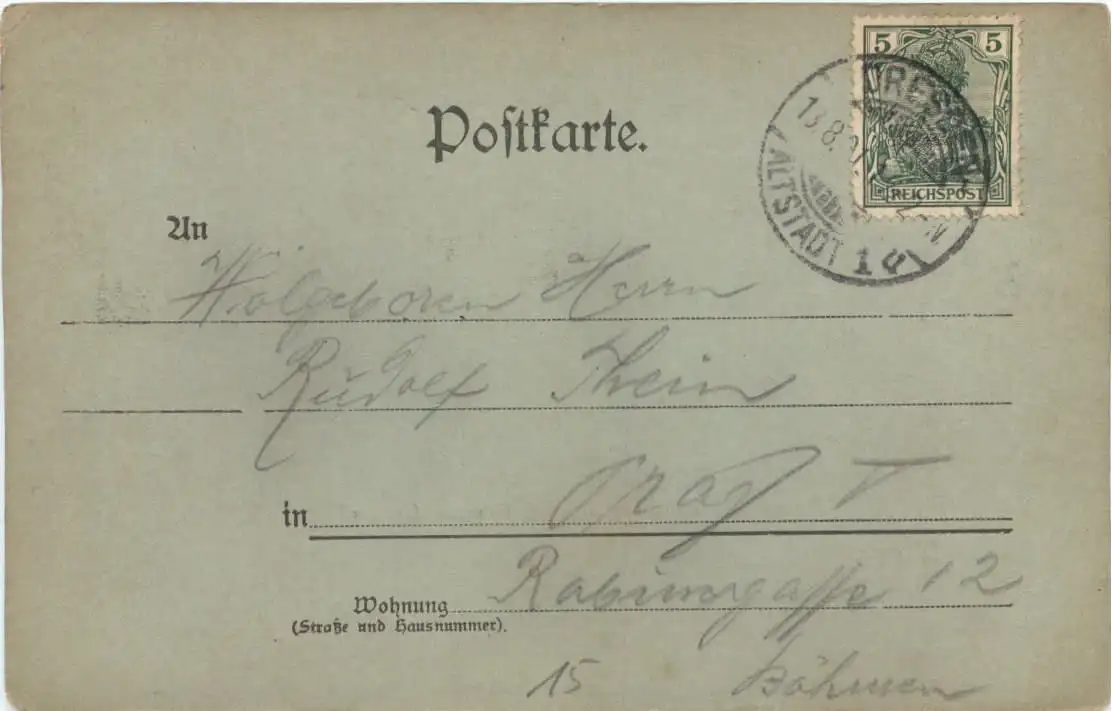 5 5
REICHSPOST
DRESDEN
ALTSTADT 14
13.8.
Postkarte.
An
Wolgeboren Herrn
Rudolf Thein
in Prag I
Wohnung Rabinergasse 12
(Straße und Hausnummer).
15 Böhmen